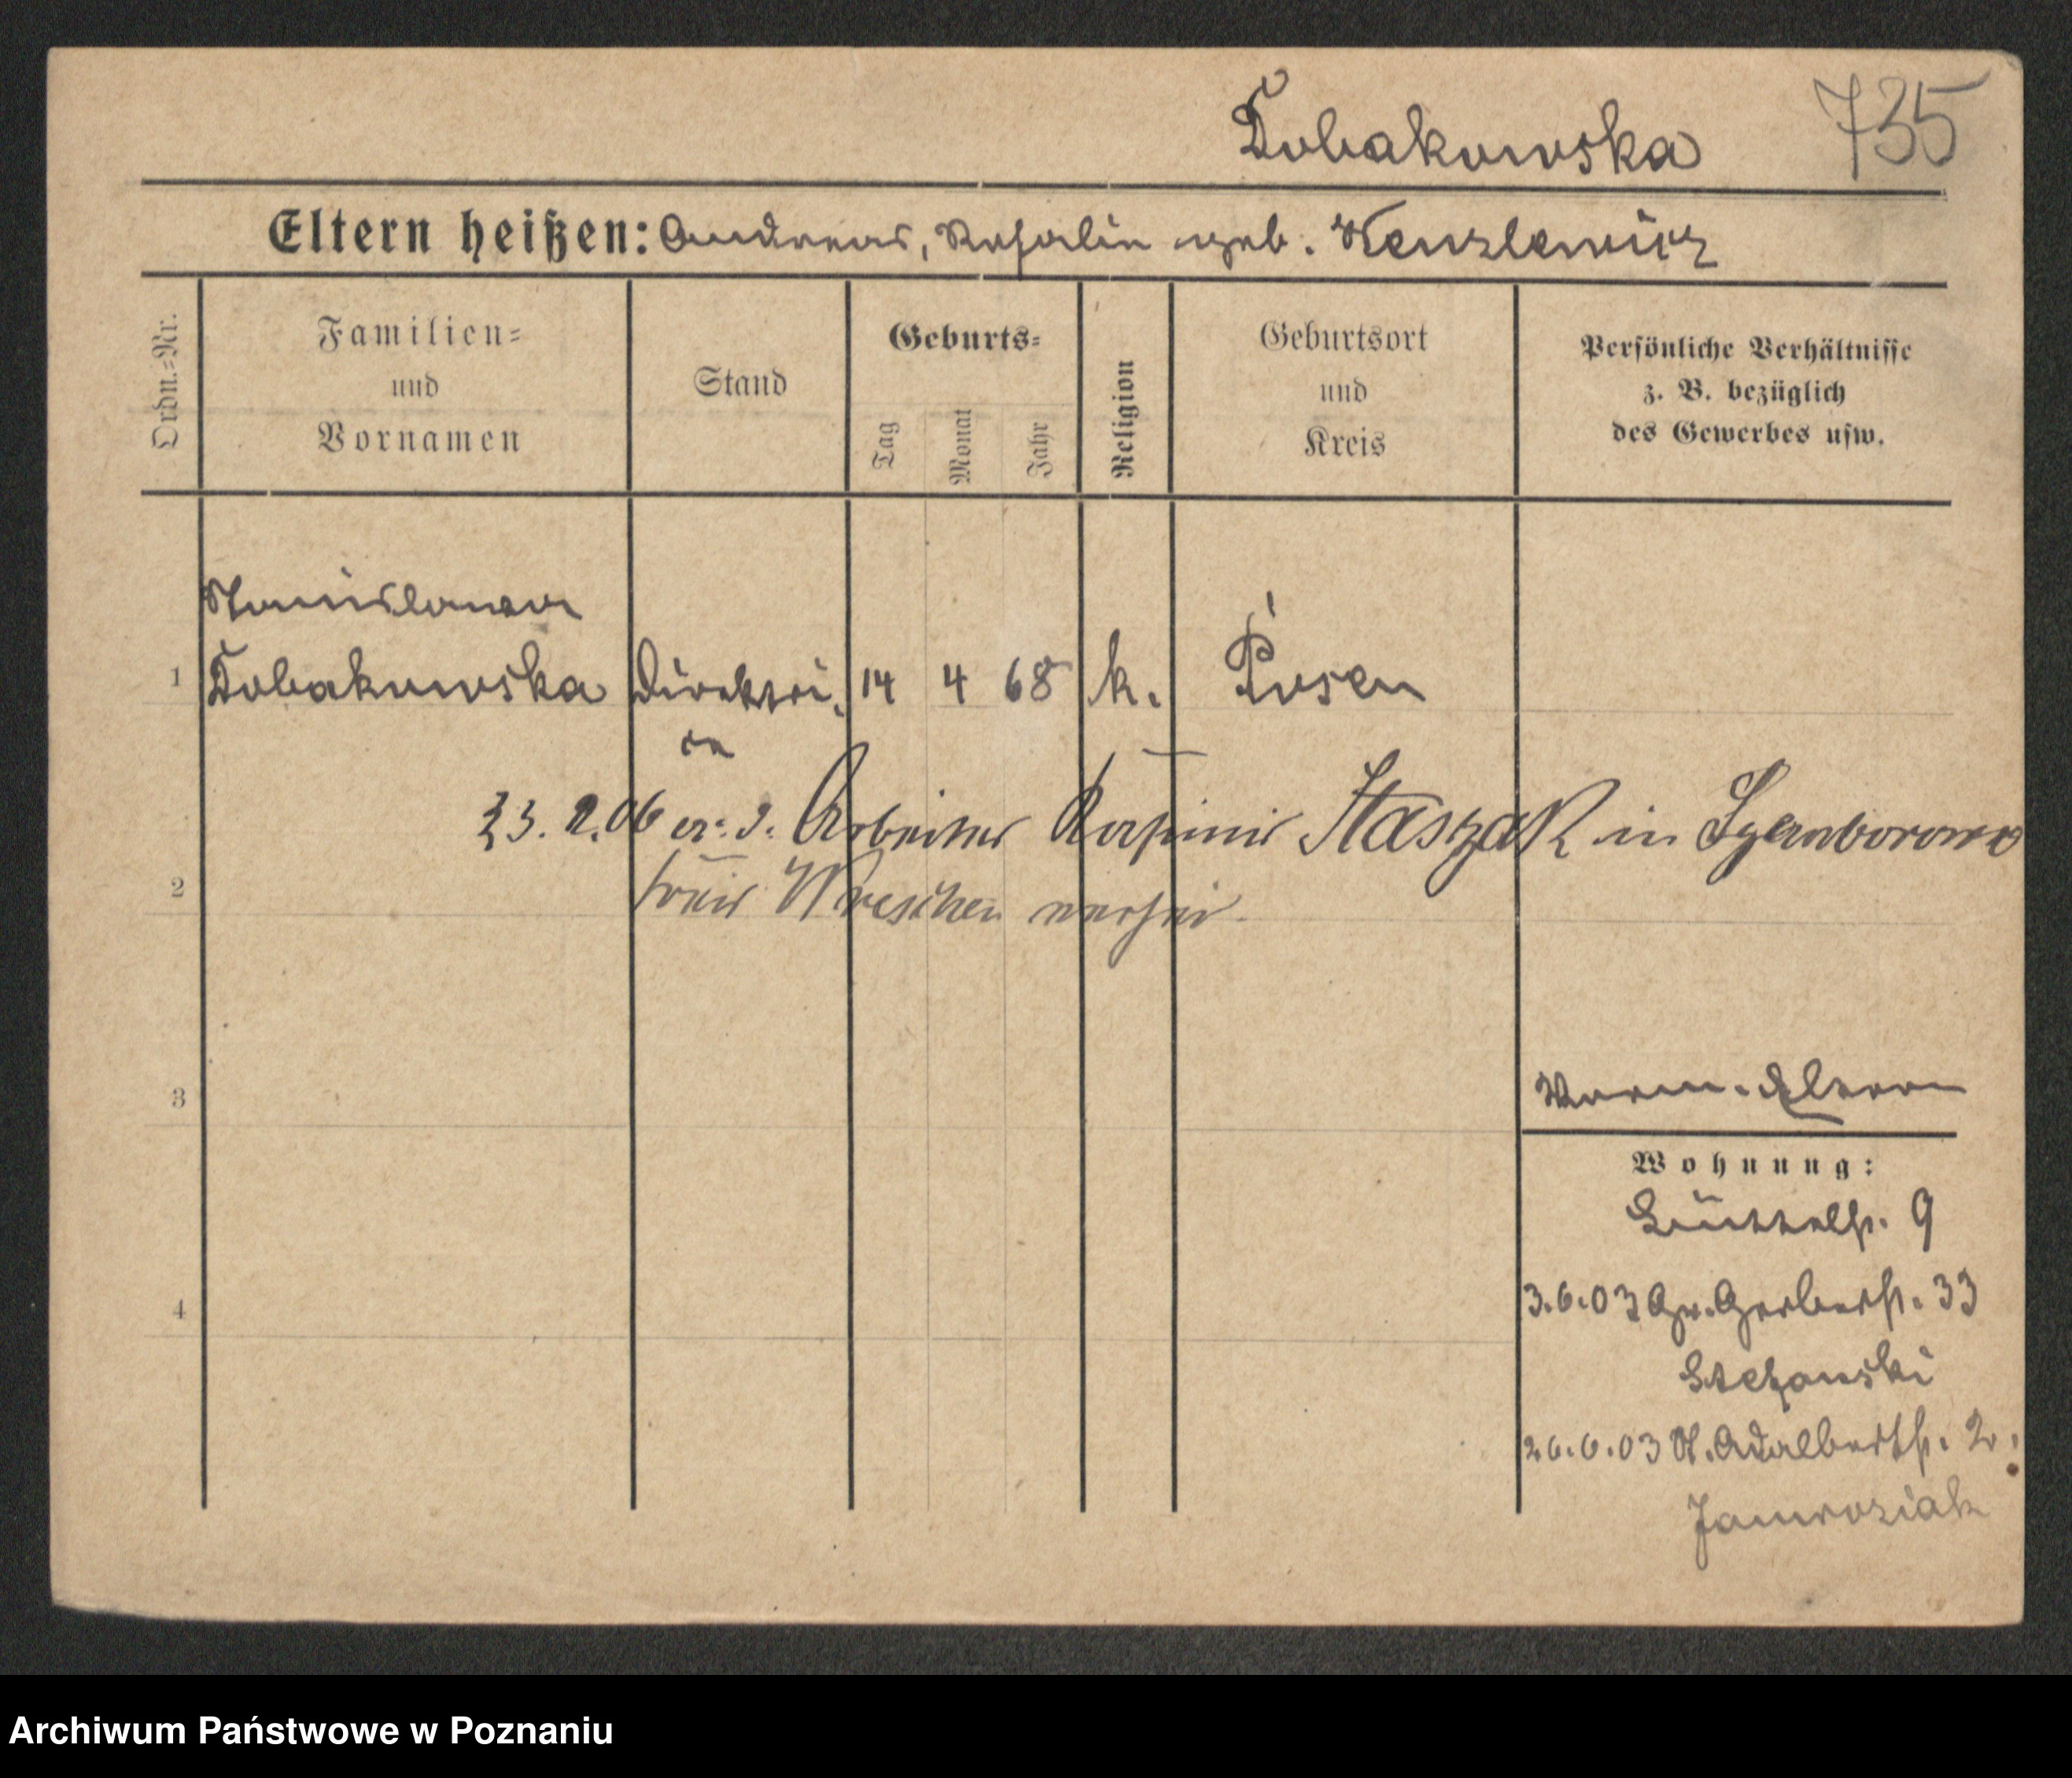 Tobakowska 735
Eltern heißen: Andreas, Rosalie geb. Wenzlewicz
Ordn.=Nr.
Familien=
und
Vornamen
Stand
Geburts=
Tag
Monat
Jahr
Religion
Geburtsort
und
Kreis
Persönliche Verhältnisse
z. B. bezüglich
des Gewerbes usw.
Stanislawa
1 Tobakowska Direktri 14 4 68 k. Posen
in
23.2.06 Arbeiter Kasimir Staszak in
2 Kreis Wreschen
3
Wohnung:
Büttelstr. 9
4 3.6.03 Gr. Gerberstr. 33
Stefanski
26.6.03 St. Adalbertstr. 2
Jamroziak
Archiwum Państwowe w Poznaniu